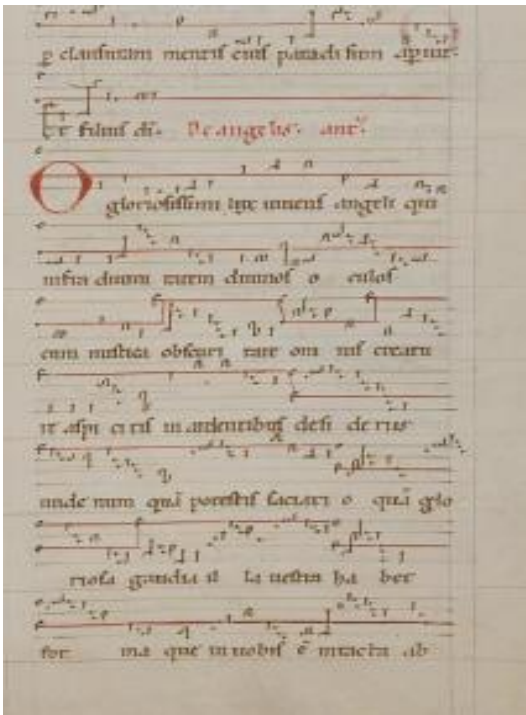 p clausuram mentis eius paradisum aperuit.
Et filius di. De angelis. ant.
O gloriosissimi lux uiuens angeli qui
infra diuini tatem diuinos o culos
cum mistica obscuri tate om nis creatu
re aspi ci tis in ardentibus desi deriis
unde num quā potestis saciari o quā glo
riosa gaudia il la uestra ha bet
for ma que in uobis ē intacta ab